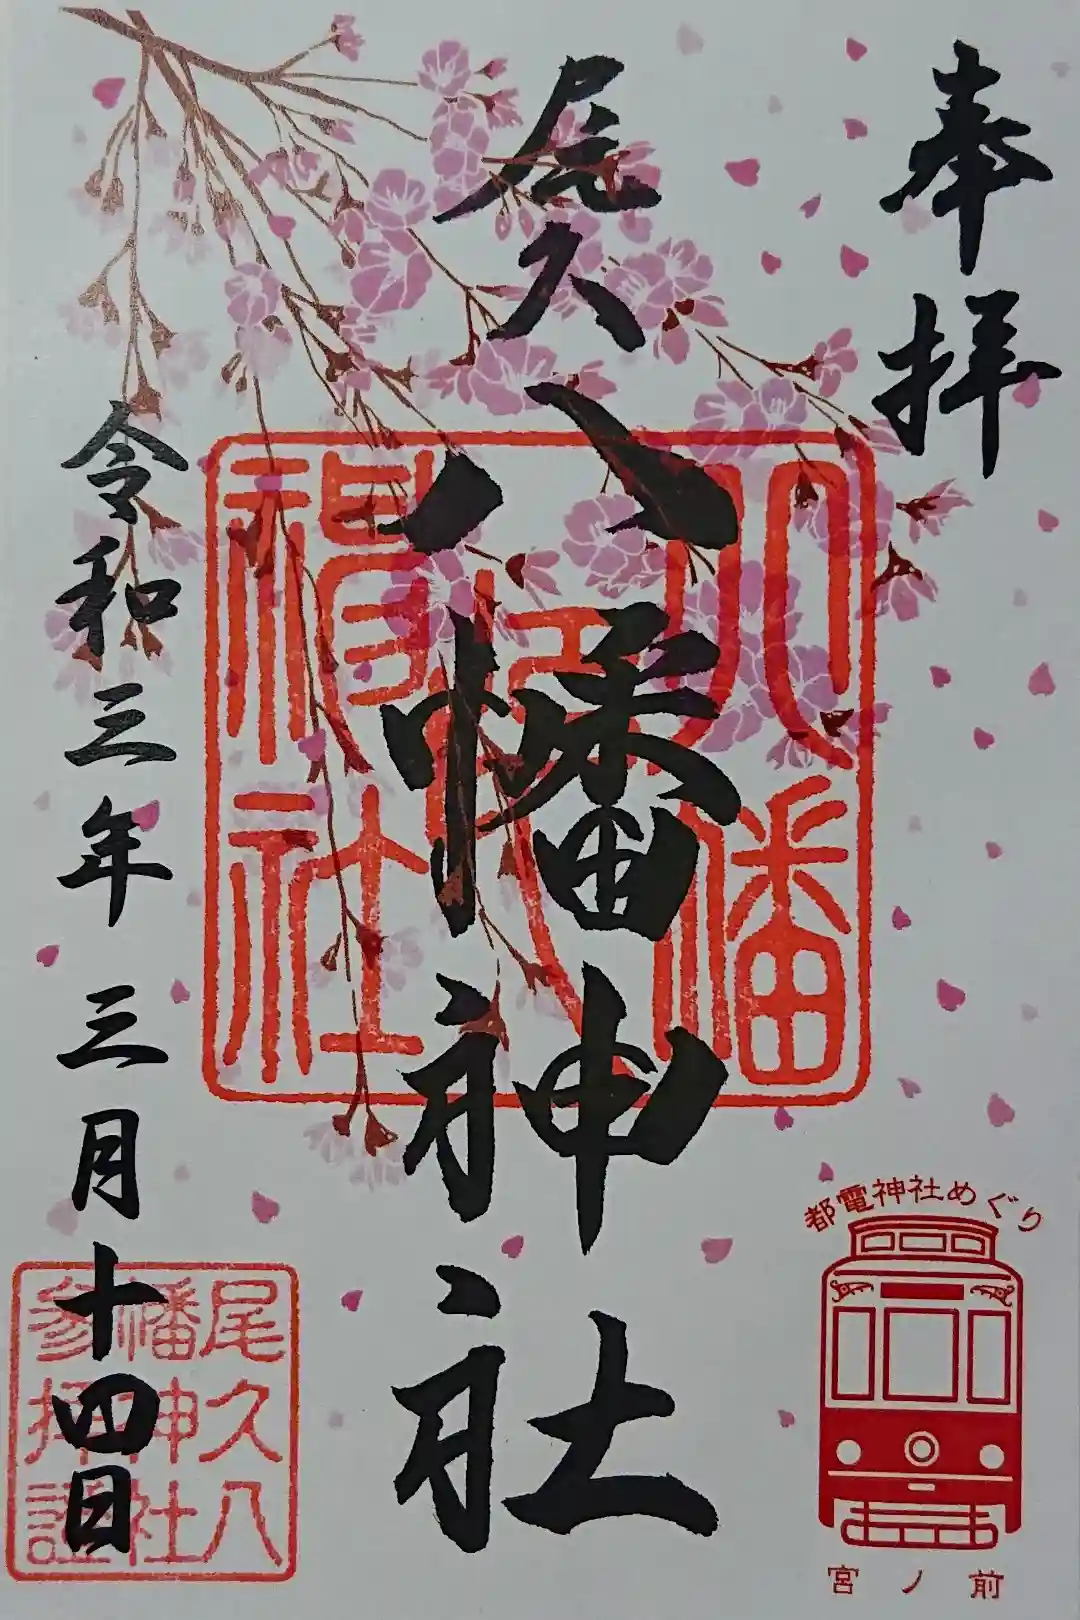 奉拝
尾久八幡神社
令和三年三月十四日
八幡
神社
尾久八
幡神社
参拝證
都電神社めぐり
宮ノ前